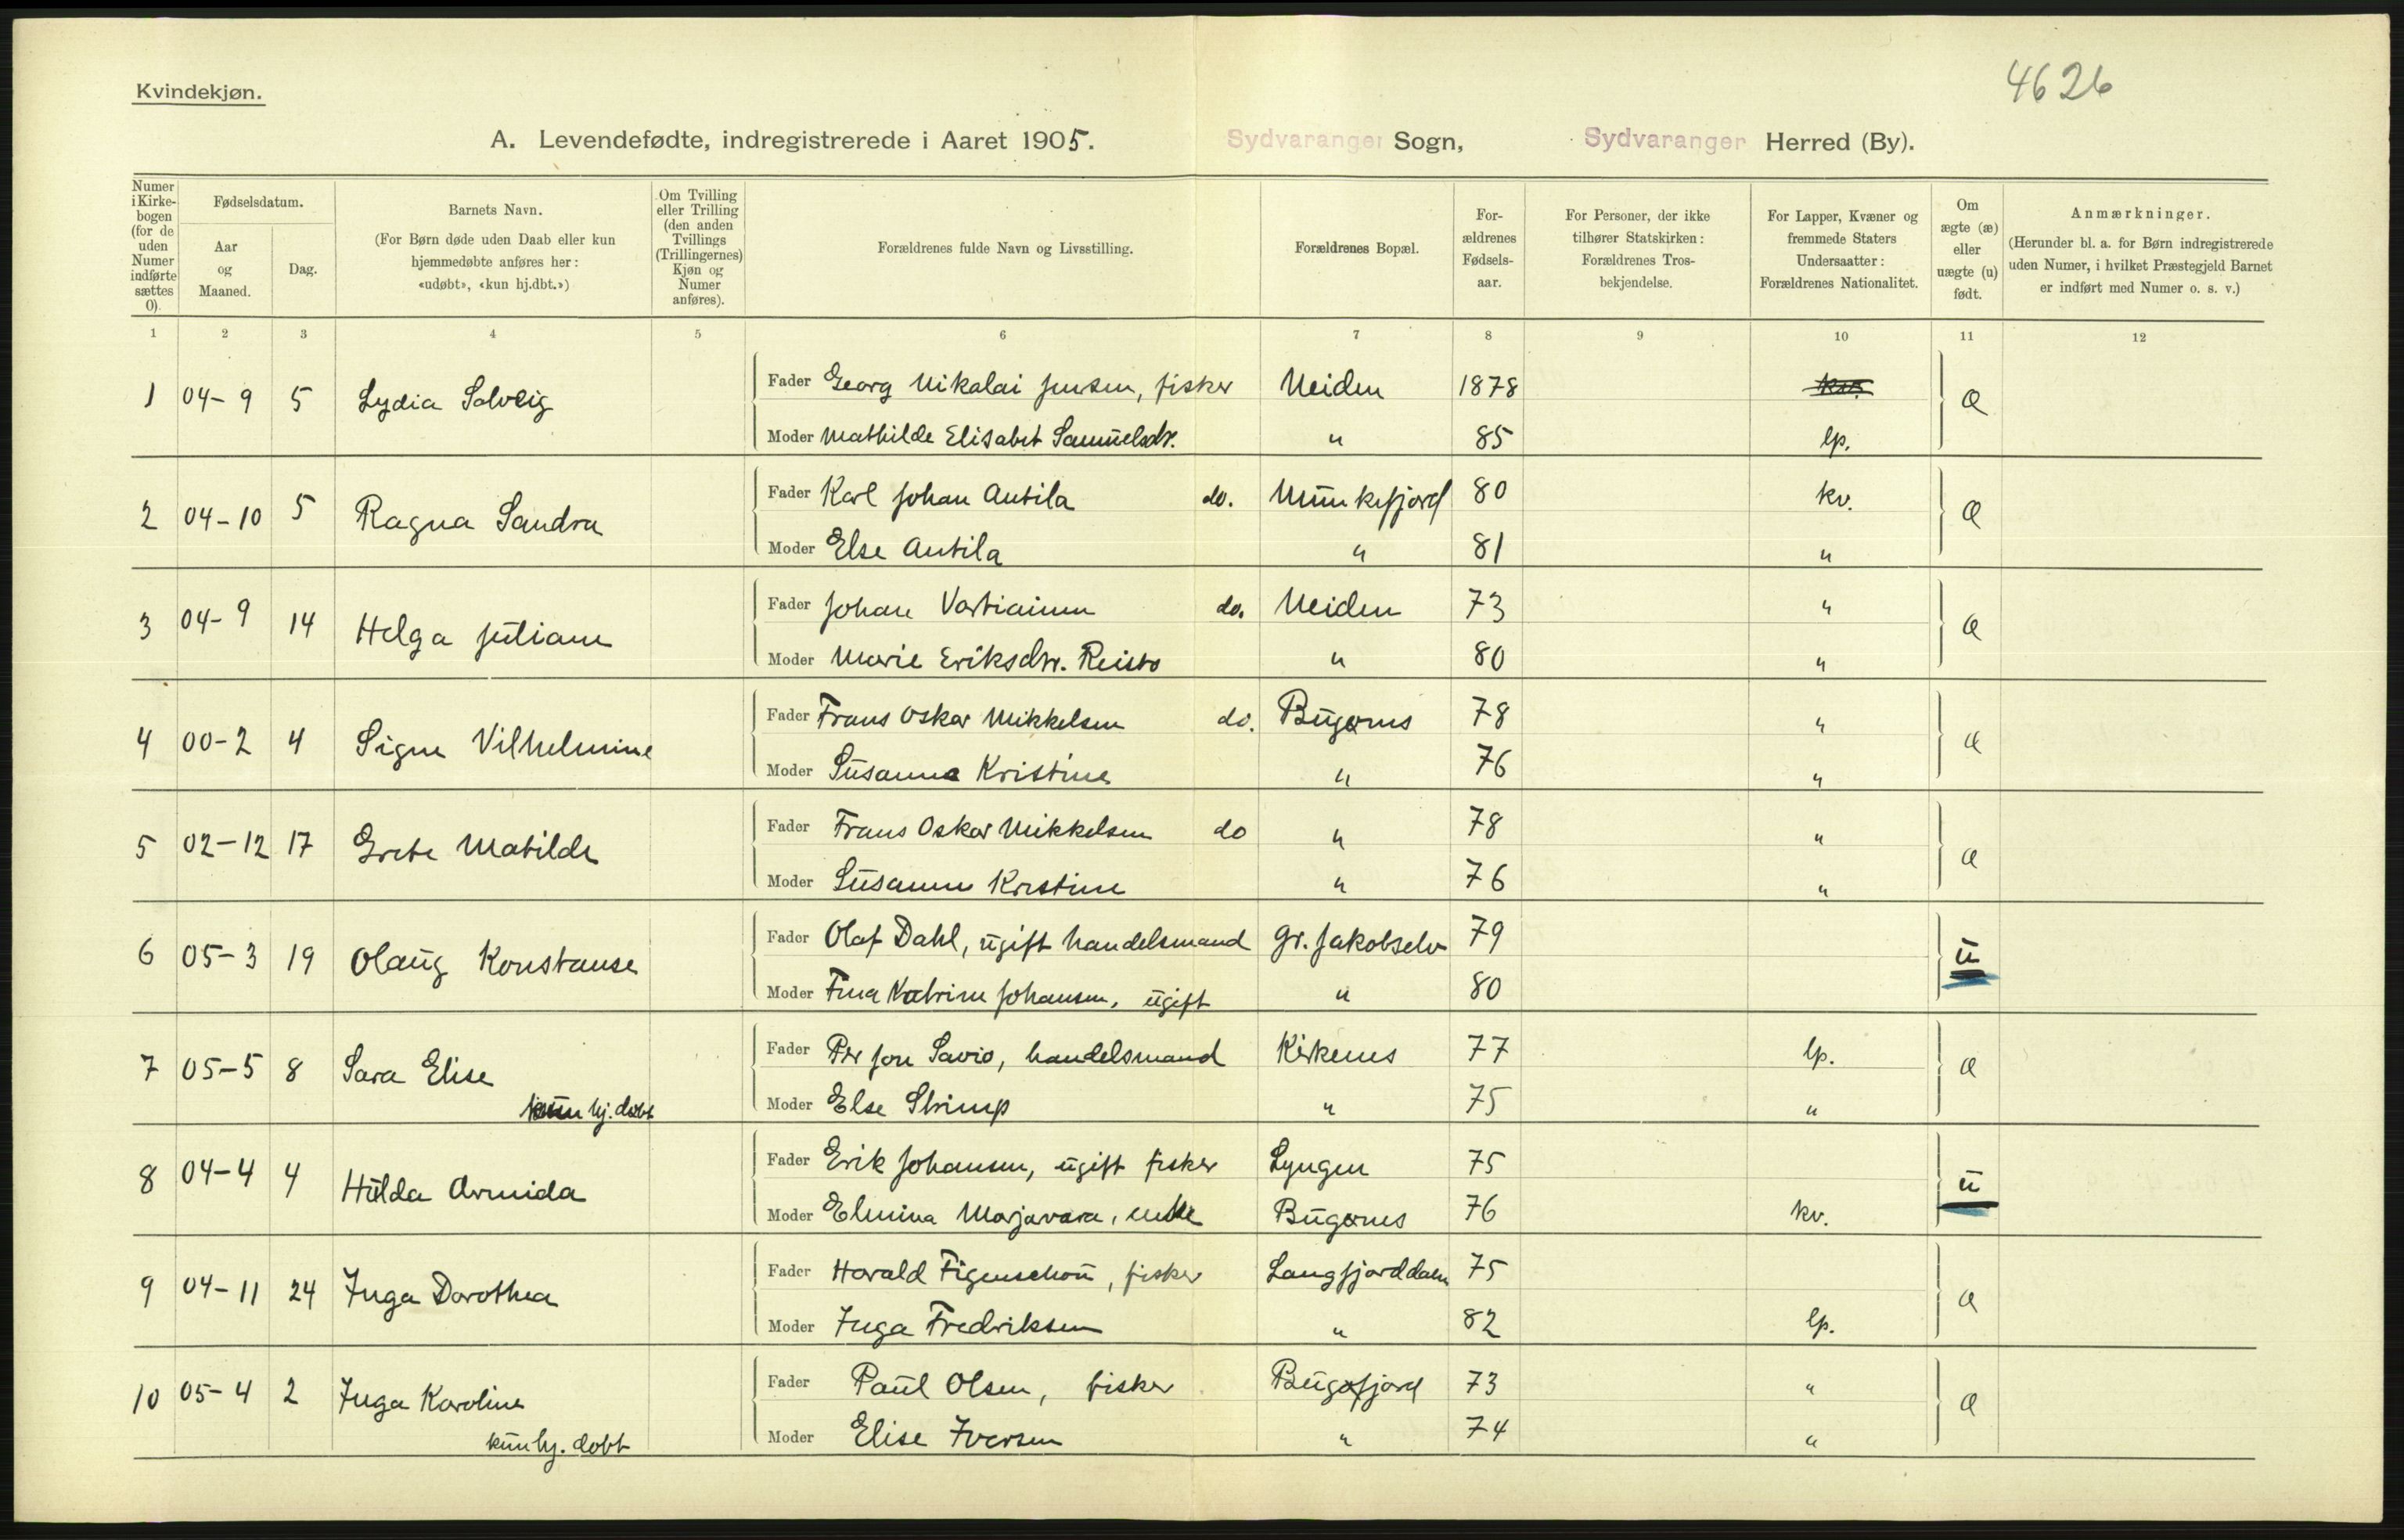 4626
Kvindekjøn.
A. Levendefødte, indregistrerede i Aaret 1905. Sydvaranger Sogn, Sydvaranger Herred (By).
Numer i Kirkebogen (for de uden Numer indførte sættes 0).
Fødselsdatum.
Aar og Maaned.
Dag.
Barnets Navn.
(For Børn døde uden Daab eller kun hjemmedøbte anføres her: «udøbt», «kun hj.dbt.»)
Om Tvilling eller Trilling (den anden Tvillings (Trillingernes) Kjøn og Numer anføres).
Forældrenes fulde Navn og Livsstilling.
Forældrenes Bopæl.
Forældrenes Fødselsaar.
For Personer, der ikke tilhører Statskirken: Forældrenes Trosbekjendelse.
For Lapper, Kvæner og fremmede Staters Undersaatter: Forældrenes Nationalitet.
Om ægte (æ) eller uægte (u) født.
Anmærkninger.
(Herunder bl. a. for Børn indregistrerede uden Numer, i hvilket Præstegjeld Barnet er indført med Numer o. s. v.)
1 2 3 4 5 6 7 8 9 10 11 12
1 04-9 5 Lydia Solveig Fader Georg Nikolai Jensen, fisker Neiden 1878 kv. æ
Moder Mathilde Elisabet Samuelsdr. " 85 lp.
2 04-10 5 Ragna Sandra Fader Karl Johan Antila do. Munkefjord 80 kv. æ
Moder Else Antila " 81 "
3 04-9 14 Helga Juliane Fader Johan Vartiainen do. Neiden 73 " æ
Moder Marie Eriksdr. Reisto " 80 "
4 00-2 4 Signe Vilhelmine Fader Frans Oskar Mikkelsen do. Bugønes 78 " æ
Moder Susanna Kristine " 76 "
5 02-12 17 Grete Matilde Fader Frans Oskar Mikkelsen do " 78 " æ
Moder Susanne Kristine " 76 "
6 05-3 19 Olaug Konstanse Fader Olaf Dahl, ugift handelsmand Gr. Jakobselv 79 u
Moder Fina Katrine Johansen, ugift " 80
7 05-5 8 Sara Elise Fader Per Jon Savio, handelsmand Kirkenes 77 lp. æ
kun hj. døbt Moder Else Strimp " 75 "
8 04-4 4 Hilda Armida Fader Erik Johansen, ugift fisker Lyngen 75 u
Moder Elmina Marjavara, enke Bugønes 76 kv.
9 04-11 24 Inga Dorothea Fader Harald Figenschou, fisker Langfjorddalen 75 æ
Moder Inga Fredriksen " 82 lp.
10 05-4 2 Inga Karoline Fader Paul Olsen, fisker Bugøfjord 73 " æ
kun hj. døbt Moder Elise Iversen " 74 "